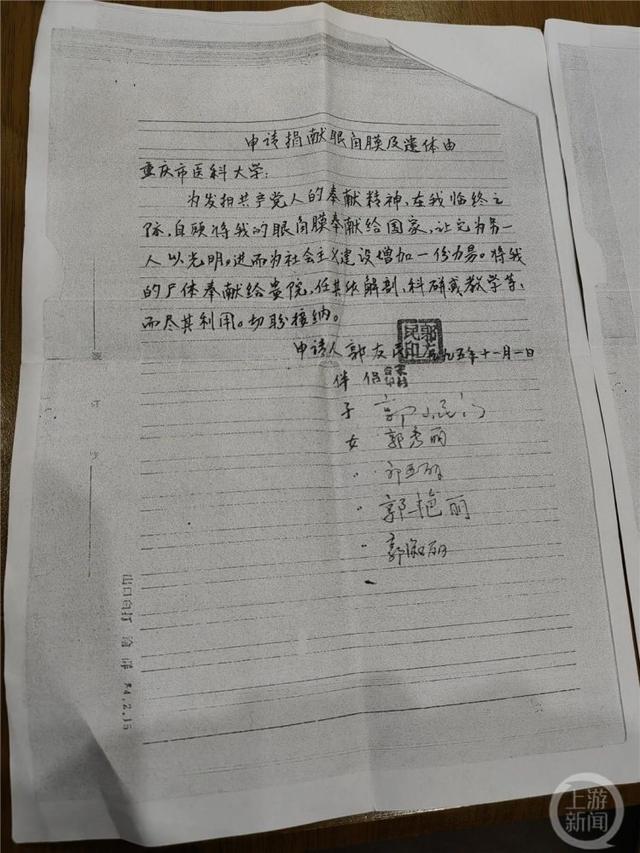 申请捐献眼角膜及遗体由
重庆市医科大学:
为发揚共产党人的奉献精神,在我临终之
际,自願将我的眼角膜奉献给国家,让它为另一
人以光明。进而为社会主义建设增加一份力易。将我
的尸体奉献给贵院,任其做解剖,科研或教学等,
而尽其利用。切盼接纳。
申请人 郭友民 九五年十一月一日
郭友民印
伴侣
子 郭
女 郭秀丽
〃
〃 郭艳丽
〃 郭淑丽
出口白打 渝 94.2.15
上游新闻